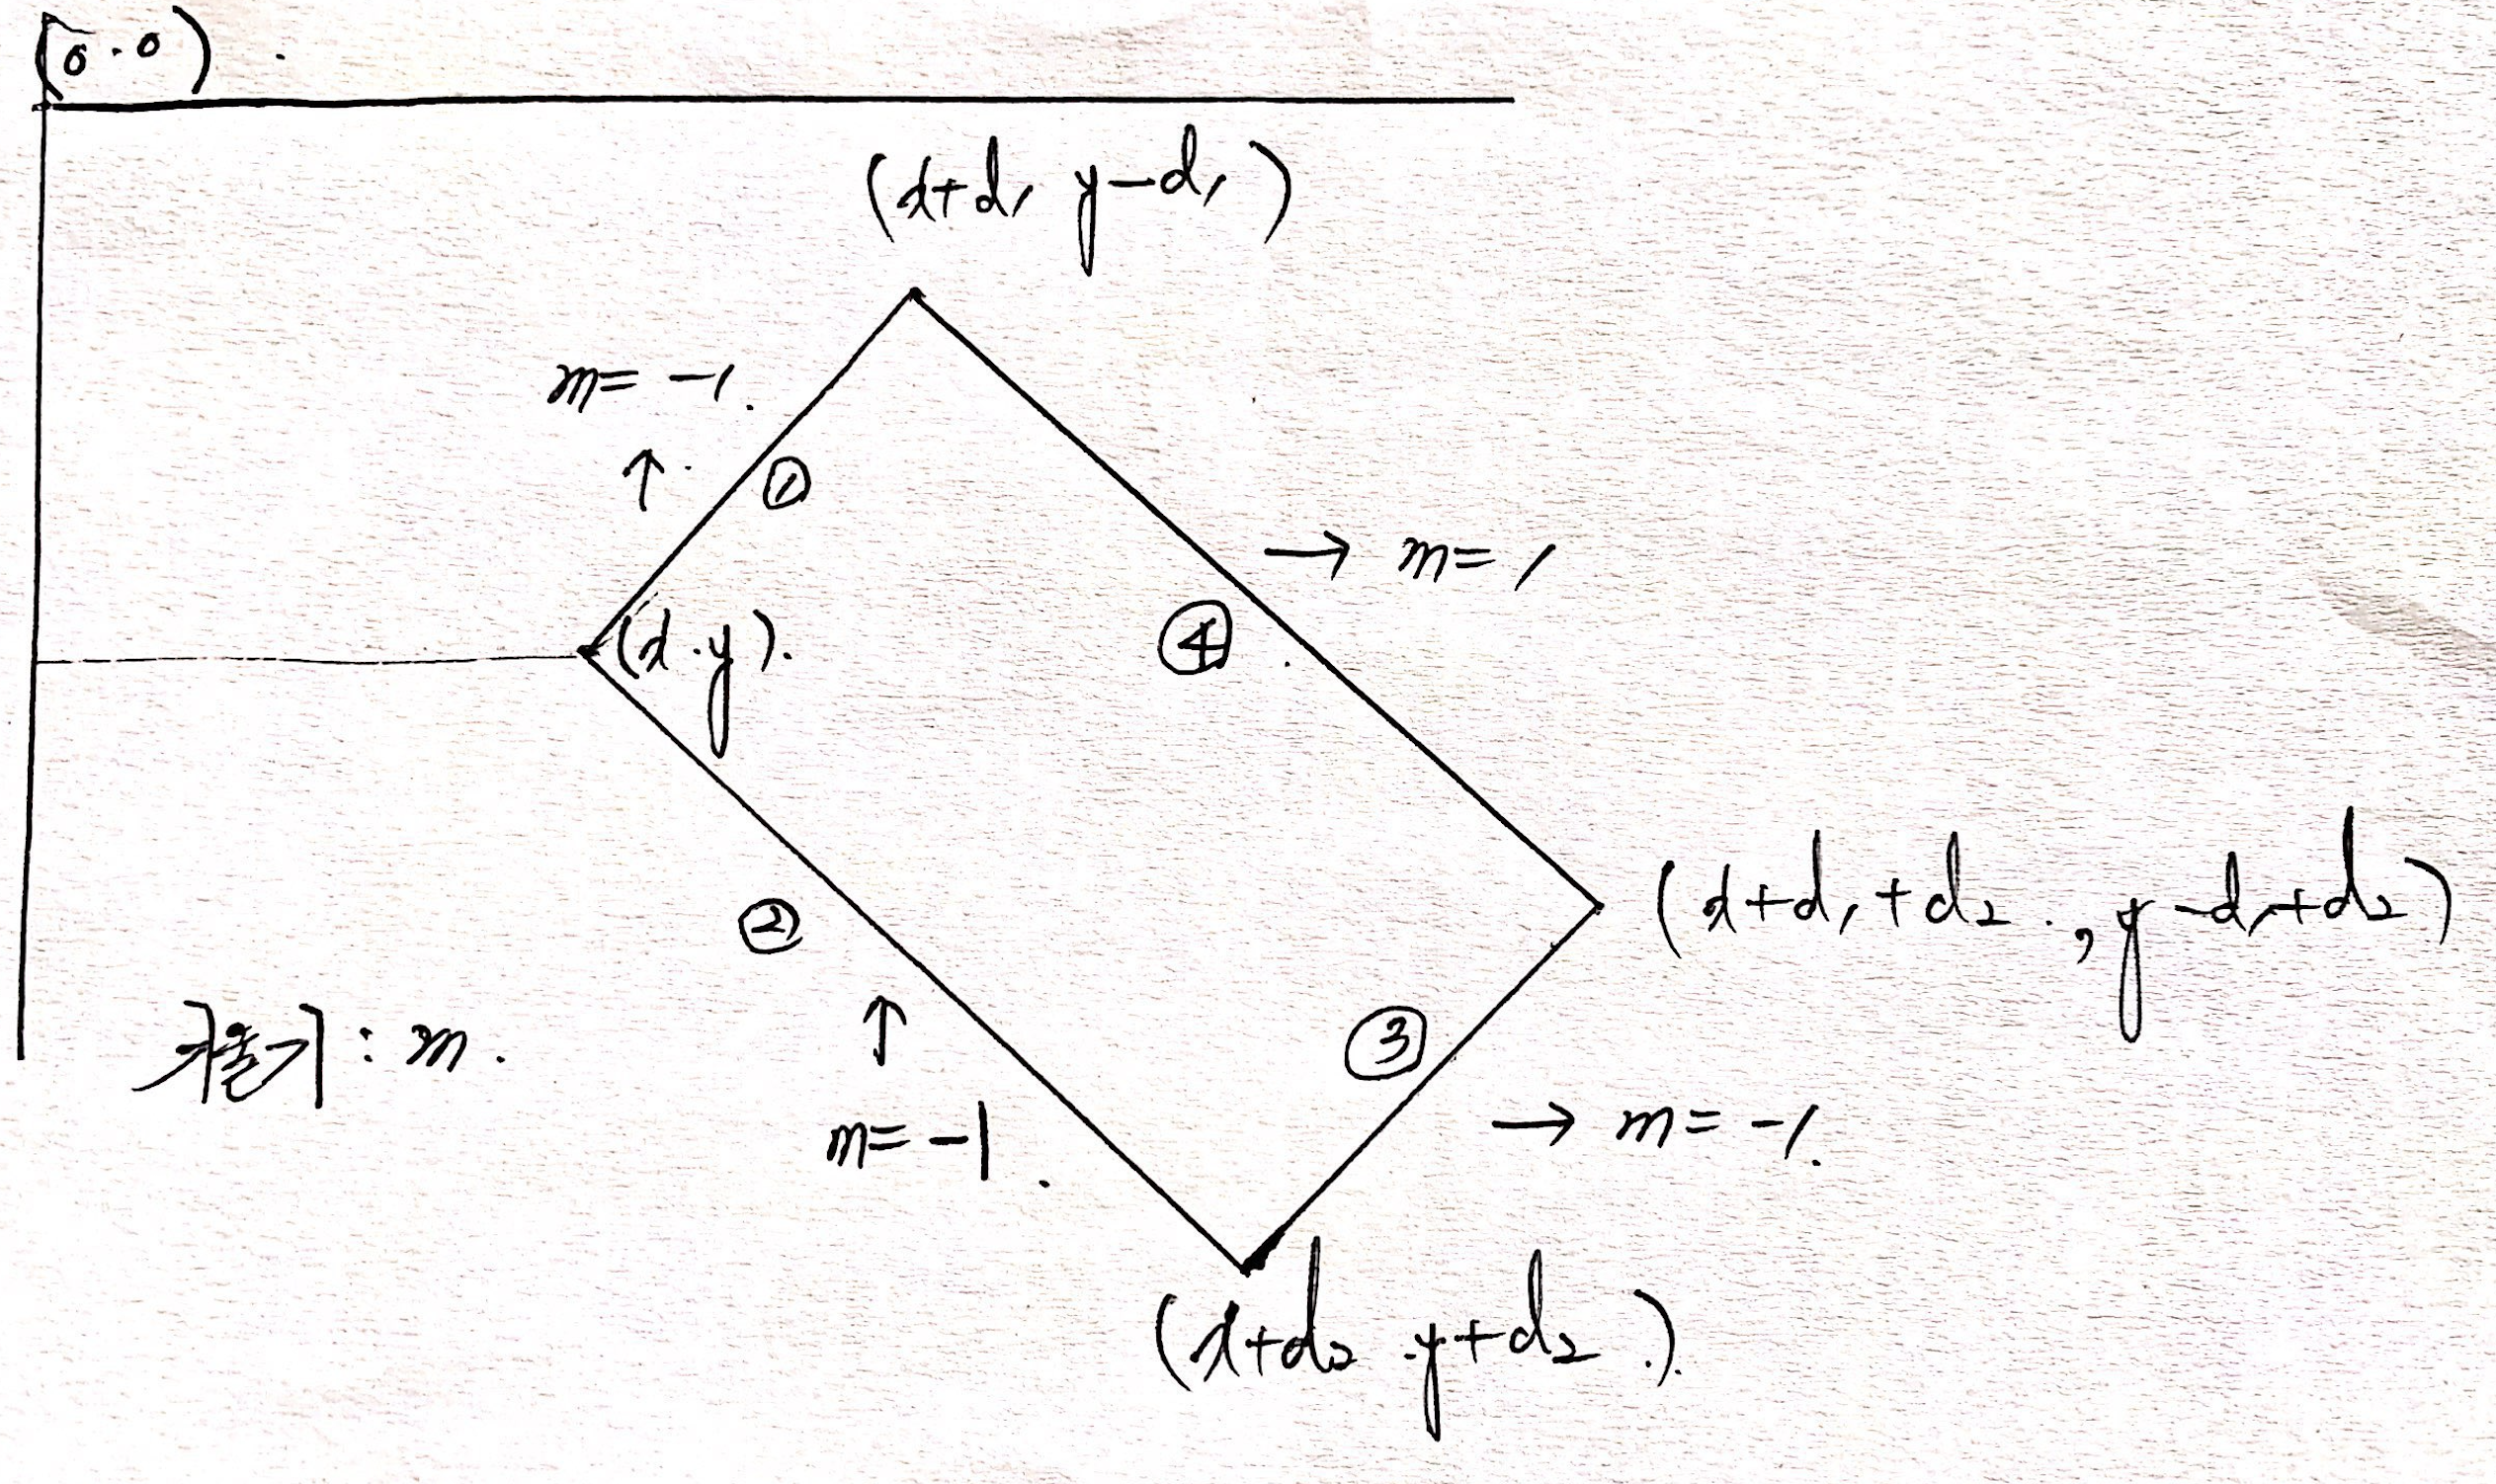 (0.0)
(x+d1 y-d1)
m= -1.
↑
①
→ m=1
(x.y).
④
(x+d1+d2., y-d1+d2)
②
기울기 : m.
↑
③
m= -1.
→ m= -1.
(x+d2 .y+d2.)